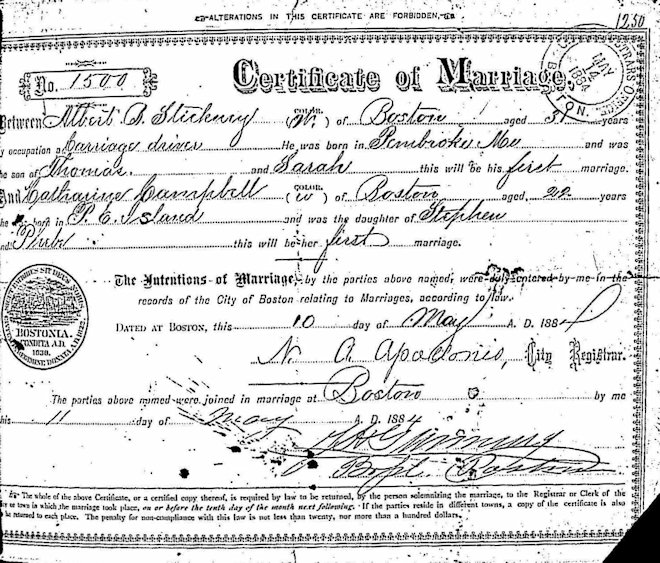 ALTERATIONS IN THIS CERTIFICATE ARE FORBIDDEN.
1250
No. 1500
Certificate of Marriage.
REGISTRARS OFFICE
MAY 14 1884
BOSTON.
Between Albert B. Stickney (COLOR. W.) of Boston aged 31 years
by occupation a Carriage driver He was born in Pembroke Me and was
the son of Thomas. and Sarah this will be his first marriage.
And Catharine Campbell (COLOR. W) of Boston aged, 22 years
she was born in P. E. Island and was the daughter of Stephen
and this will be her first marriage.
The Intentions of Marriage, by the parties above named, were duly entered by me in the
records of the City of Boston relating to Marriages, according to law.
DATED AT BOSTON, this 10 day of May A. D. 1884
N. A. City Registrar.
BOSTONIA.
CONDITA A.D.
1630.
The parties above named were joined in marriage at Boston by me
this 11 day of May A. D. 1884
Boston
The whole of the above Certificate, or a certified copy thereof, is required by law to be returned, by the person solemnizing the marriage, to the Registrar or Clerk of the
city or town in which the marriage took place, on or before the tenth day of the month next following. If the parties reside in different towns, a copy of the certificate is also
to be returned to each place. The penalty for non-compliance with this law is not less than twenty, nor more than a hundred dollars.